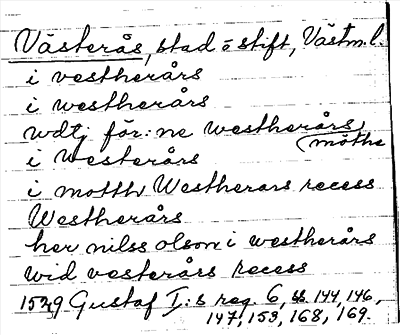 Västerås, stad o stift, Västm.l.
i vestherårs
i westherårs
wdtj för:ne westherårs
möthe
i Westerårs
i motth Westherars recess
Westherårs
her nilss olson i westherårs
wid vesterårs recess
1529 Gustaf I:s reg. 6, ss. 144, 146,
147, 153, 168, 169.